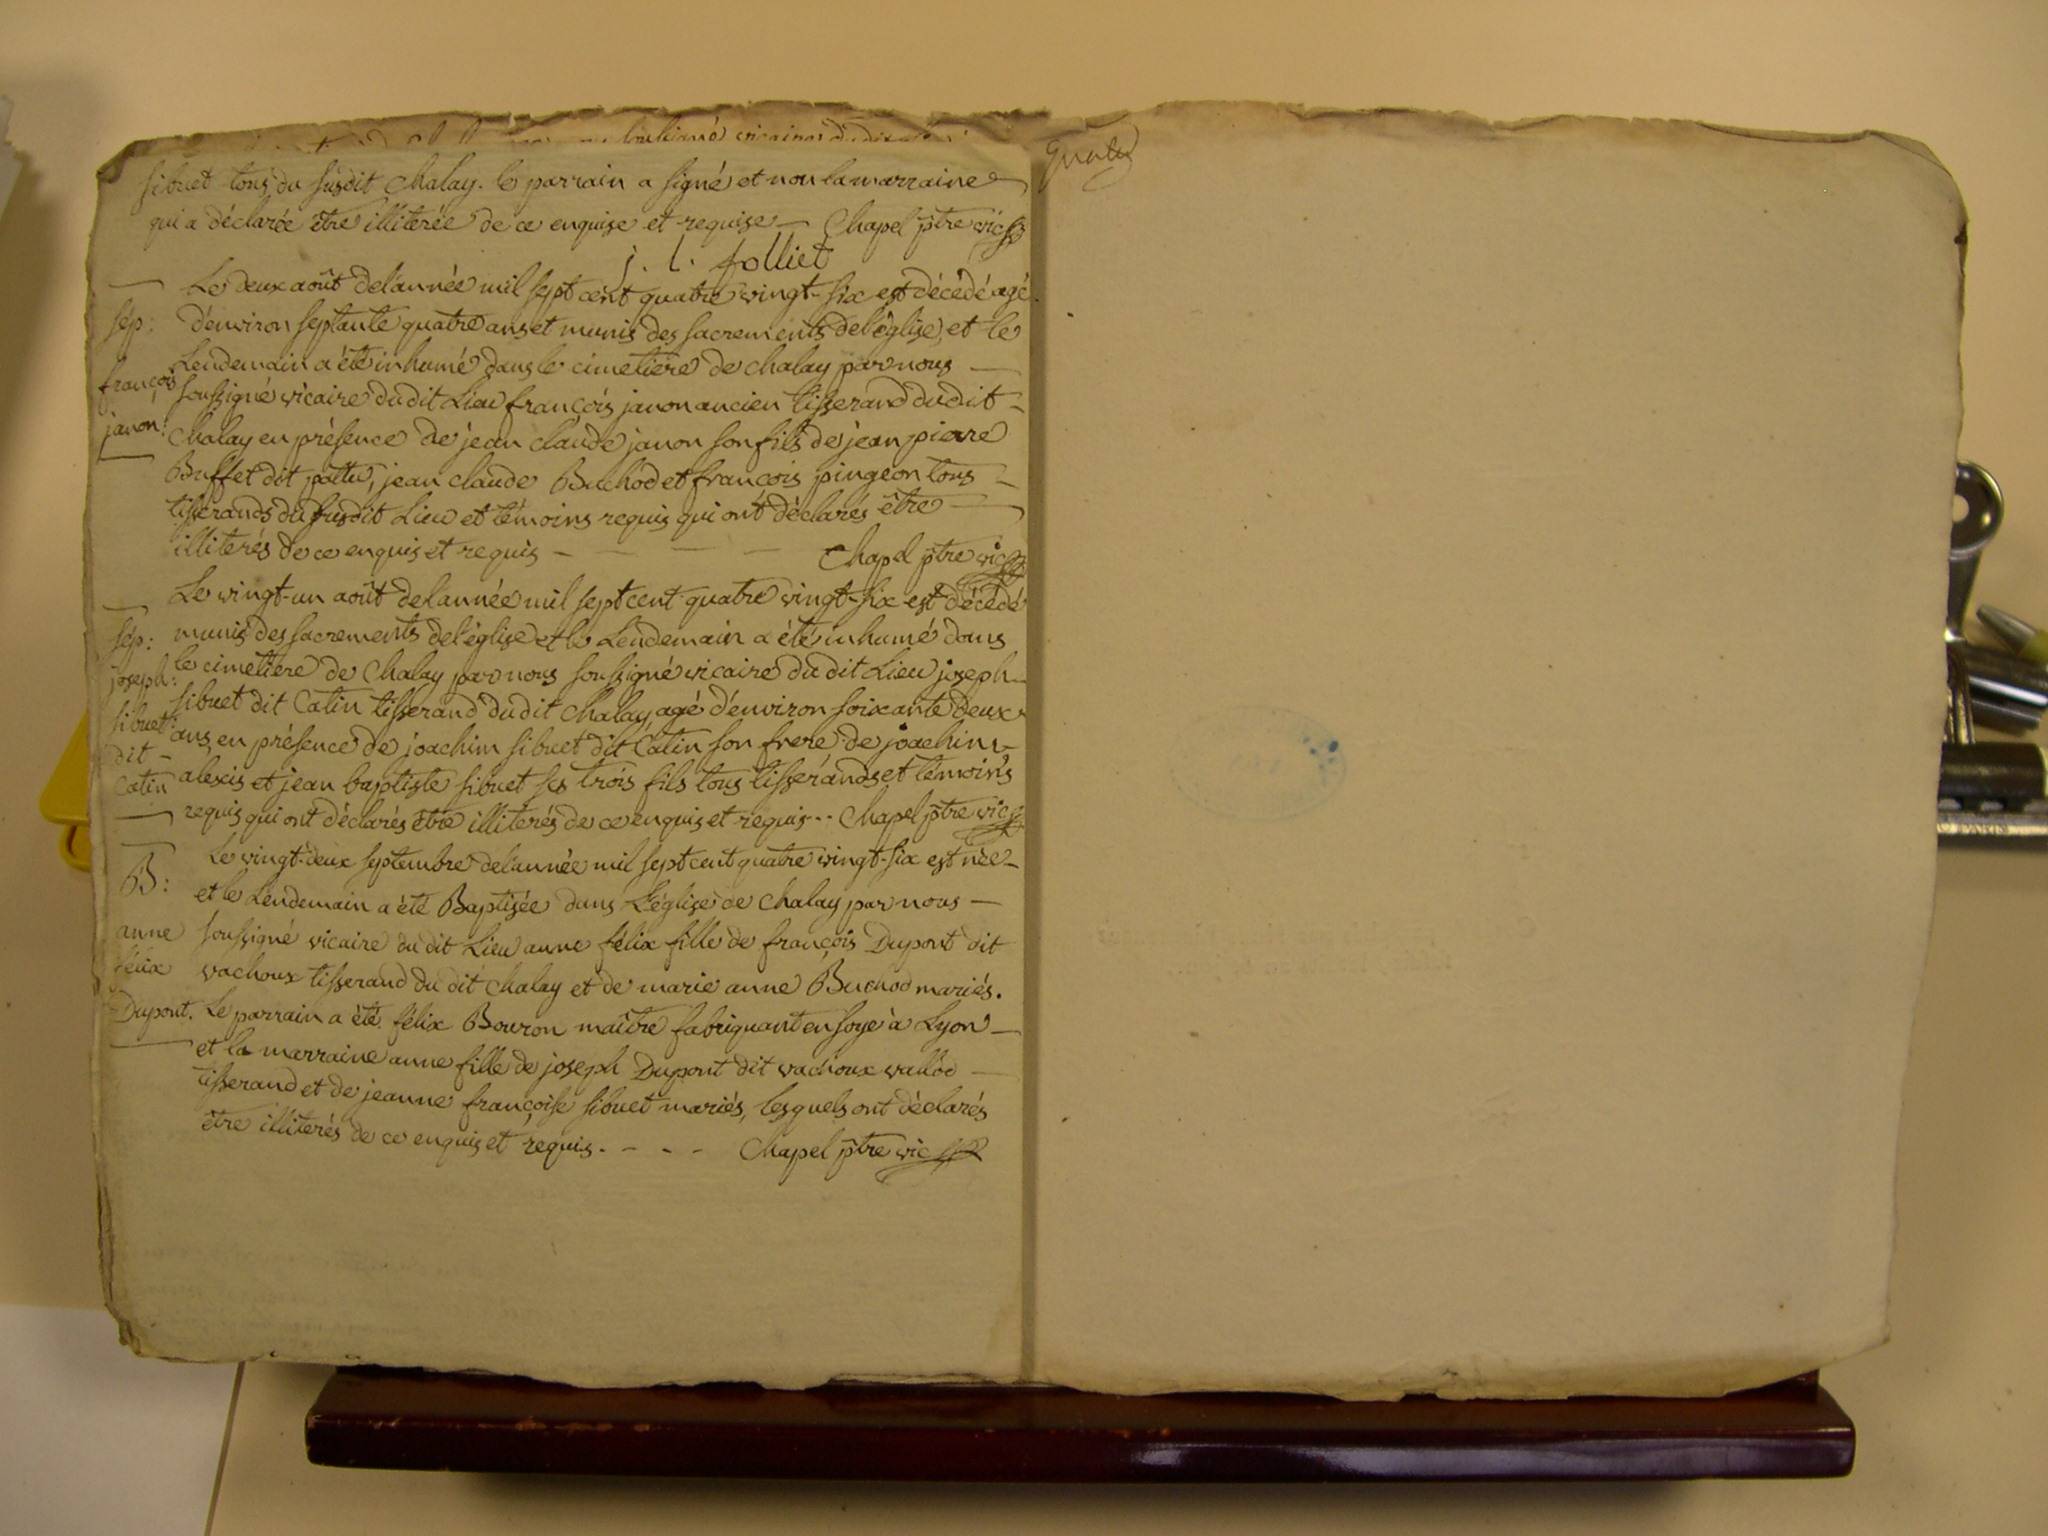 sibuet tous du susdit Chalay. le parrain a signé et non la marraine
qui a déclarée être illiterée de ce enquise et requise — Chapel ptre vic
j. l. folliet
Le deux août de l'année mil sept cent quatre vingt-six est décédé agé
sép: d'environ septante quatre ans et munis des sacrements de l'église, et le
Lendemain a été inhumé dans le cimetiere de chalay par nous —
françois soussigné vicaire du dit Lieu françois janon ancien tisserand du dit -
janon: Chalay en présence de jean claude janon son fils de jean pierre
Buffet dit pattu, jean claude Buchod et françois pingeon tous -
tisserands du susdit Lieu et témoins requis qui ont déclarés être —
illiterés de ce enquis et requis — — — — Chapel ptre vic
Le vingt-un août de l'année mil sept cent quatre vingt-six est décédé
sép: munis des sacrements de l'église et le Lendemain a été inhumé dans
joseph: le cimetiere de Chalay par nous soussigné vicaire du dit Lieu joseph
sibuet dit Catin tisserand du dit Chalay, agé d'environ soixante deux
sibuet: ans, en présence de joachim sibuet dit Catin son frere de joachim -
dit -
Catin alexis et jean baptiste sibuet ses trois fils tous tisserands et témoins
requis qui ont déclarés être illiterés de ce enquis et requis - - - Chapel ptre vic
Le vingt-deux septembre de l'année mil sept cent quatre vingt-six est née -
B: et le Lendemain a été Baptisée dans L'église de Chalay par nous —
anne soussigné vicaire du dit Lieu anne félix fille de françois Dupont dit
félix vachoux tisserand du dit Chalay et de marie anne Buchod mariés.
Dupont. Le parrain a été félix Bouron maître fabriquant en soye à Lyon —
et la marraine anne fille de joseph Dupont dit vachoux vallod —
tisserand et de jeanne françoise sibuet mariés, lesquels ont déclarés
être illiterés de ce enquis et requis. - - - Chapel ptre vic